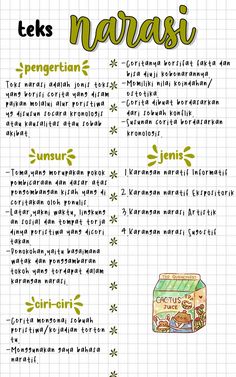 teks narasi
pengertian
Teks narasi adalah jenis teks
yang berisi cerita yang disam
paikan melalui alur peristiwa
yg disusun secara kronologis
atau kausalitas atau sebab
akibat.
unsur
-Tema, yang merupakan pokok
pembicaraan dan dasar atas
pengembangan kisah yang di
ceritakan oleh penulis
-Latar, yakni waktu, lingkung
an sosial dan tempat terja
dinya peristiwa yang dicori
takan.
-Penokohan, yaitu bagaimana
watak dan penggambaran
tokoh yang terdapat dalam
karangan narasi.
ciri-ciri
-Cerita mengenai sebuah
peristiwa/kejadian terten
tu.
-Menggunakan gaya bahasa
naratif.
-Ceritanya bersifat fakta dan
bisa diuji kebenarannya
-Memiliki nilai keindahan/
estetika
-Cerita dibuat berdasarkan
dari sebuah konflik
-Susunan cerita berdasarkan
kronologis
jenis
1 Karangan naratif Informatif
2 Karangan naratif Ekspositorik
3 Karangan narasi Artistik
4 Karangan narasi Sugestif
CACTUS
JUICE